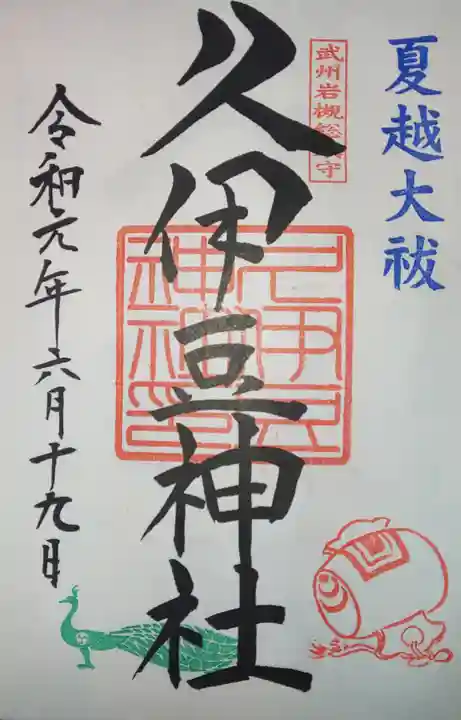 夏越大祓
武州岩槻総鎮守
久伊豆神社
久伊豆神社印
令和元年六月十九日